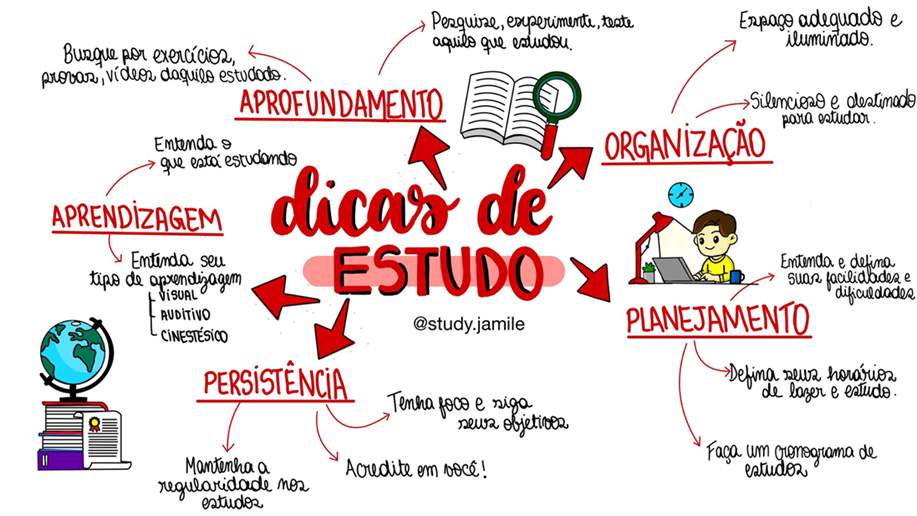 dicas de
ESTUDO
@study.jamile
APROFUNDAMENTO
Busque por exercícios,
provas, vídeos daquilo estudado.
Pesquise, experimente, teste
aquilo que estudou.
ORGANIZAÇÃO
Espaço adequado e
iluminado.
Silencioso e destinado
para estudar.
APRENDIZAGEM
Entenda o
que está estudando
Entenda seu
tipo de aprendizagem
VISUAL
AUDITIVO
CINESTÉSICO
PLANEJAMENTO
Entenda e defina
suas facilidades e
dificuldades
Defina seus horários
de lazer e estudo.
Faça um cronograma de
estudos
PERSISTÊNCIA
Tenha foco e siga
seus objetivos
Acredite em você!
Mantenha a
regularidade nos
estudos